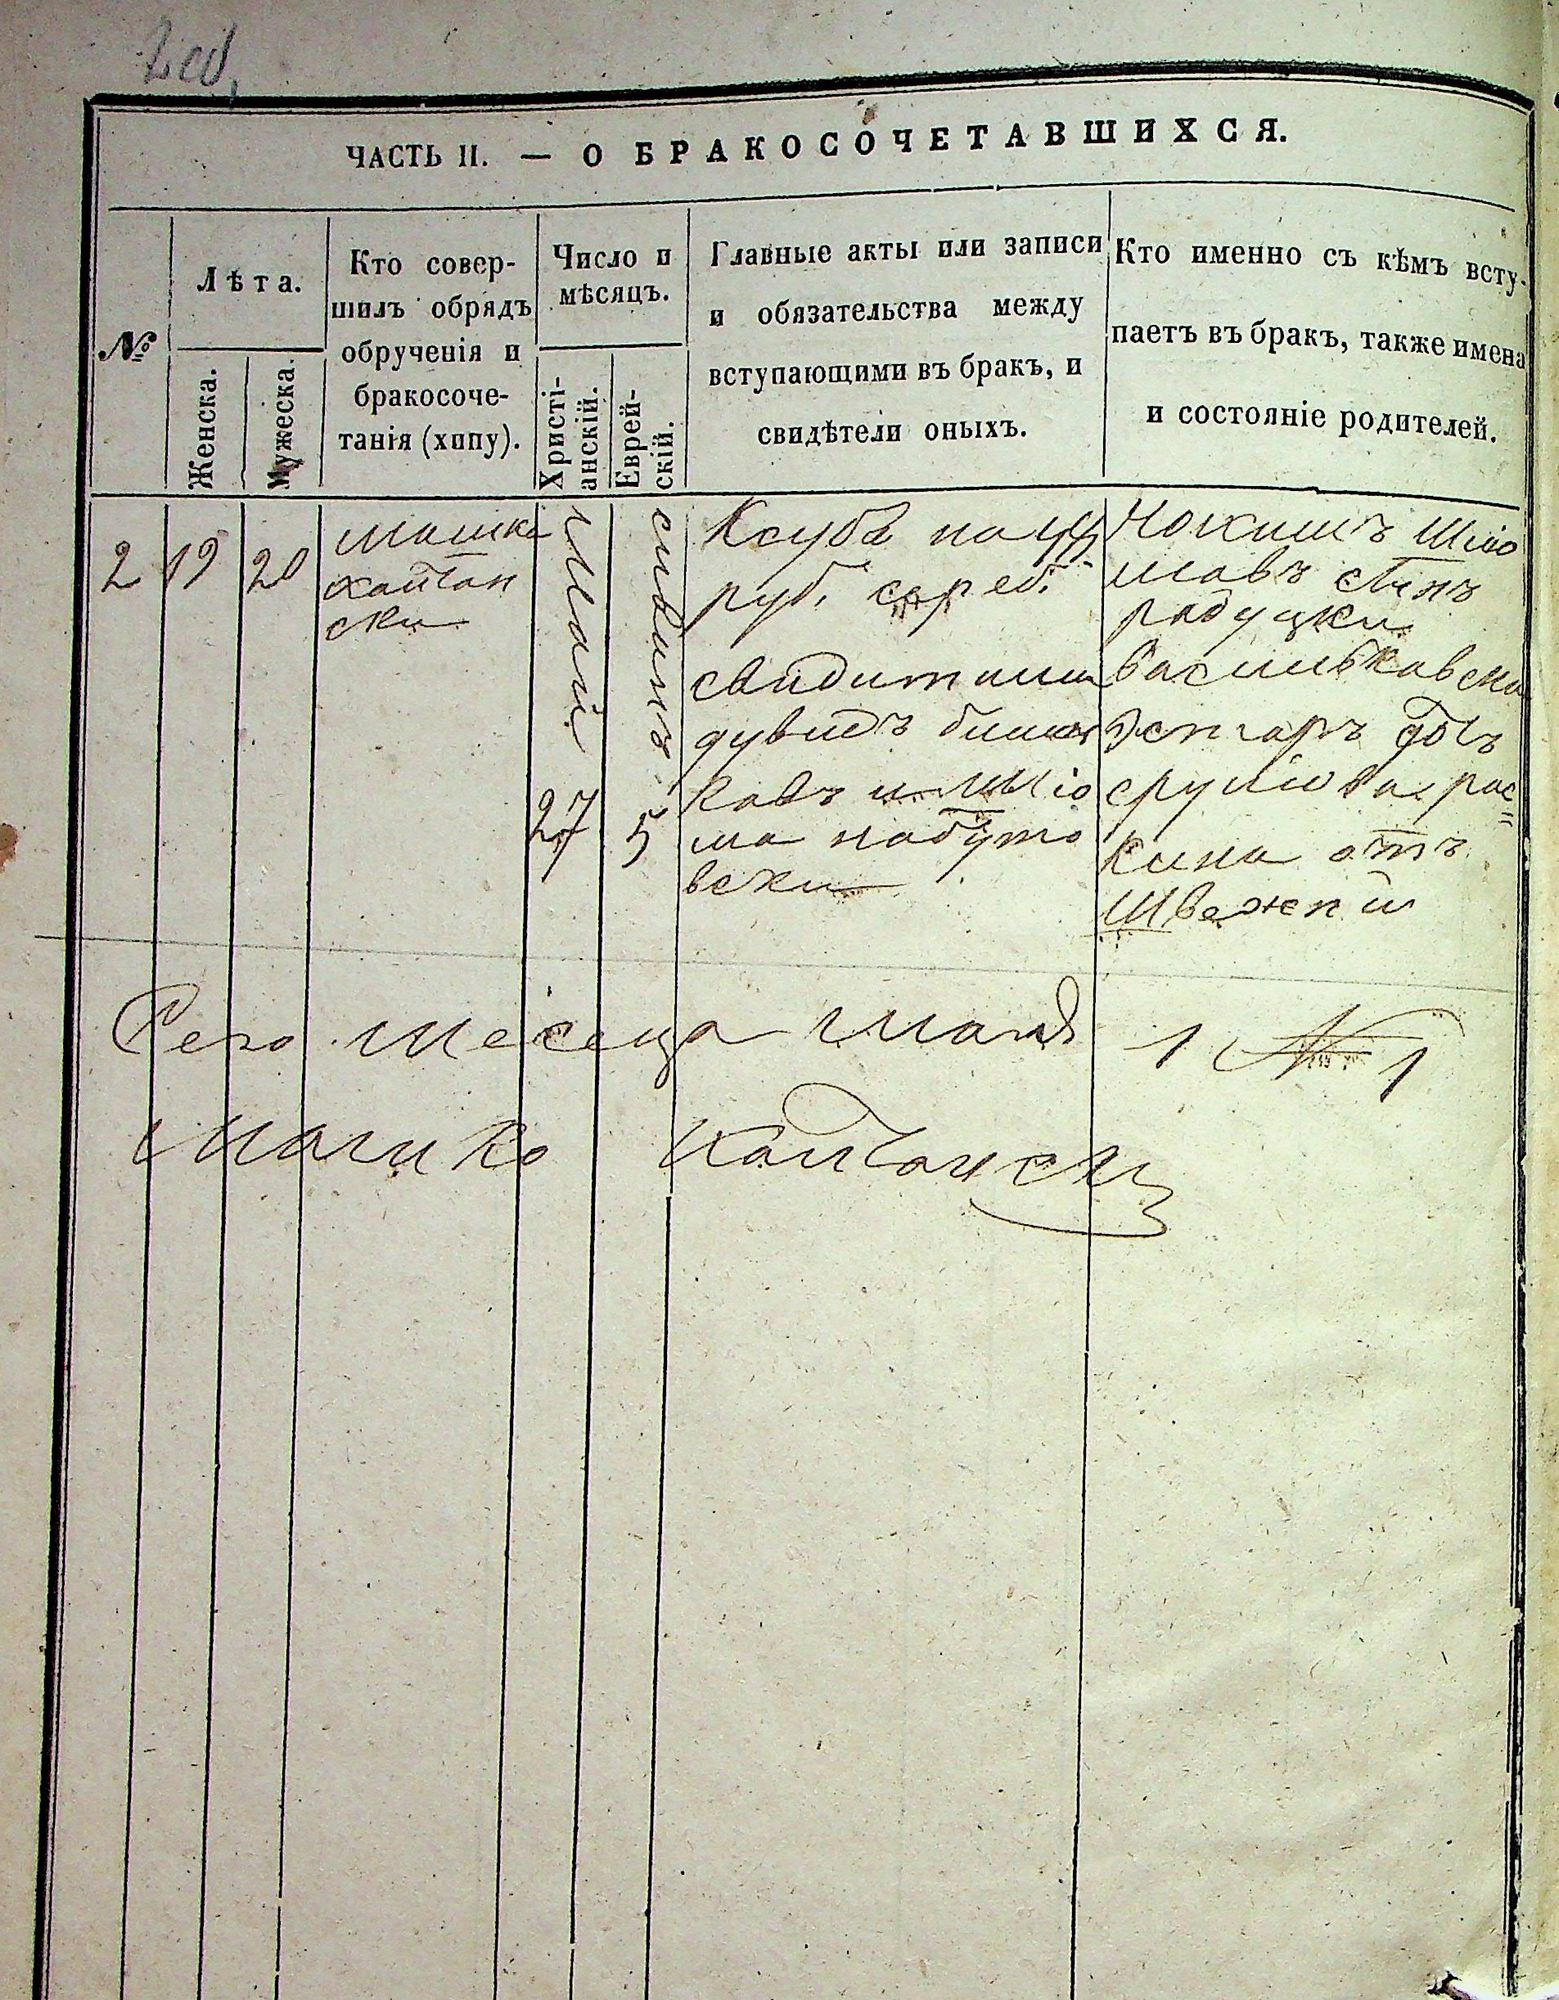 ЧАСТЬ II. — О БРАКОСОЧЕТАВШИХСЯ.
№
Лѣта.
Женска.
Мужеска.
Кто совер-
шилъ обрядъ
обрученія и
бракосоче-
танія (хипу).
Число и
мѣсяцъ.
Христі-
анскій.
Еврей-
скій.
Главные акты или записи
и обязательства между
вступающими въ бракъ, и
свидѣтели оныхъ.
Кто именно съ кѣмъ всту-
паетъ въ бракъ, также имена
и состояніе родителей.
2
19
20
Машка
каптан
ски
Май
27
сиванъ
5
Ксуба на
руб. сереб.
свидители
дувидъ
кавъ и Шлио
ма набуто
вски
Шлио
мавъ синъ
радуцки
васильковска
Эстеръ
от
Сего месеца мая 1 № 1
Машко Каптански